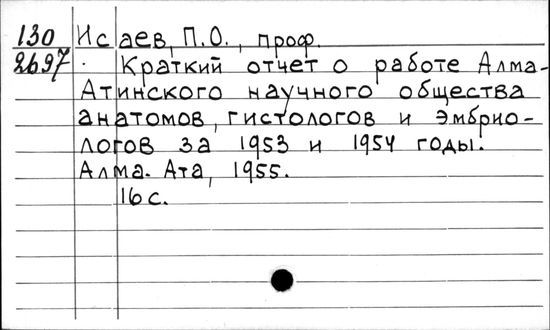 130 Исаев, П.О., проф.
2697 Краткий отчет о работе Алма-
Атинского научного общества
анатомов, гистологов и эмбрио-
логов за 1953 и 1954 годы.
Алма-Ата, 1955.
16 с.